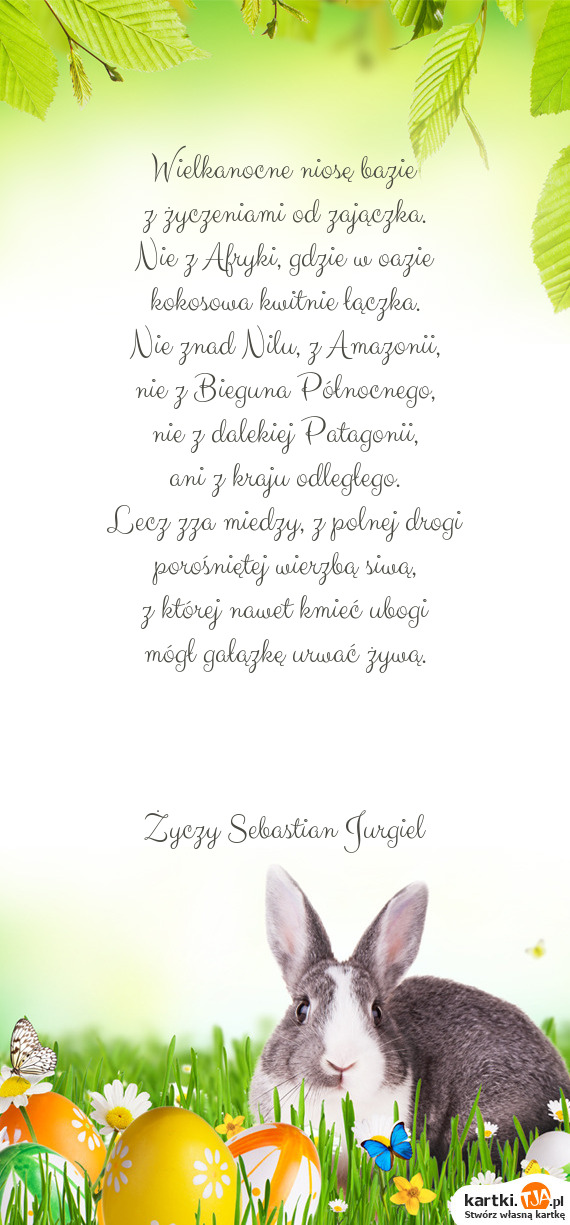 Wielkanocne niosę bazie
z życzeniami od zajączka.
Nie z Afryki, gdzie w oazie
kokosowa kwitnie łączka.
Nie znad Nilu, z Amazonii,
nie z Bieguna Północnego,
nie z dalekiej Patagonii,
ani z kraju odległego.
Lecz zza miedzy, z polnej drogi
porośniętej wierzbą siwą,
z której nawet kmieć ubogi
mógł gałązkę urwać żywą.
Życzy Sebastian Jurgiel
kartki.TJA.pl
Stwórz własną kartkę